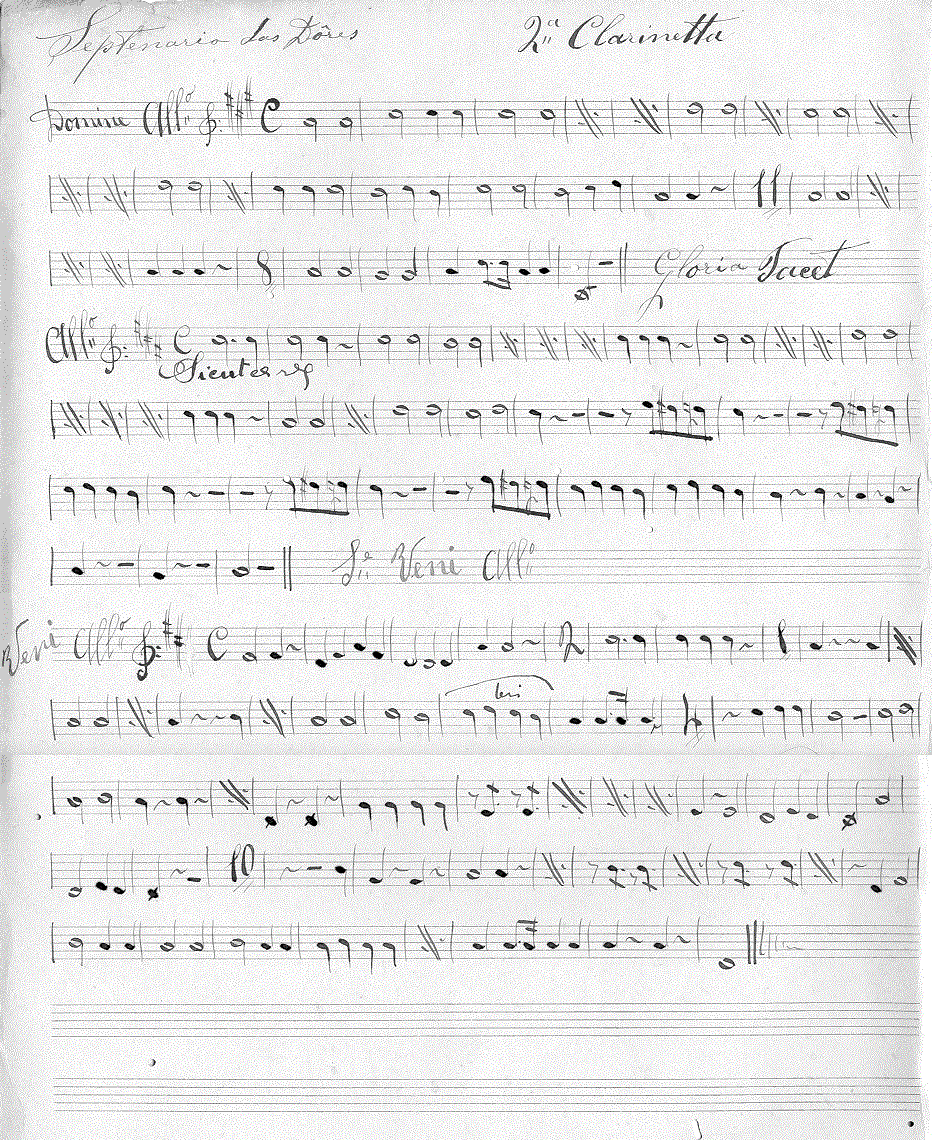 Septenario das Dôres 2ª Clarinetta
Domine All.º C
11
8 Gloria Tacet
All.º C
S.e Veni All.º
Veni All.º C 2 8
10